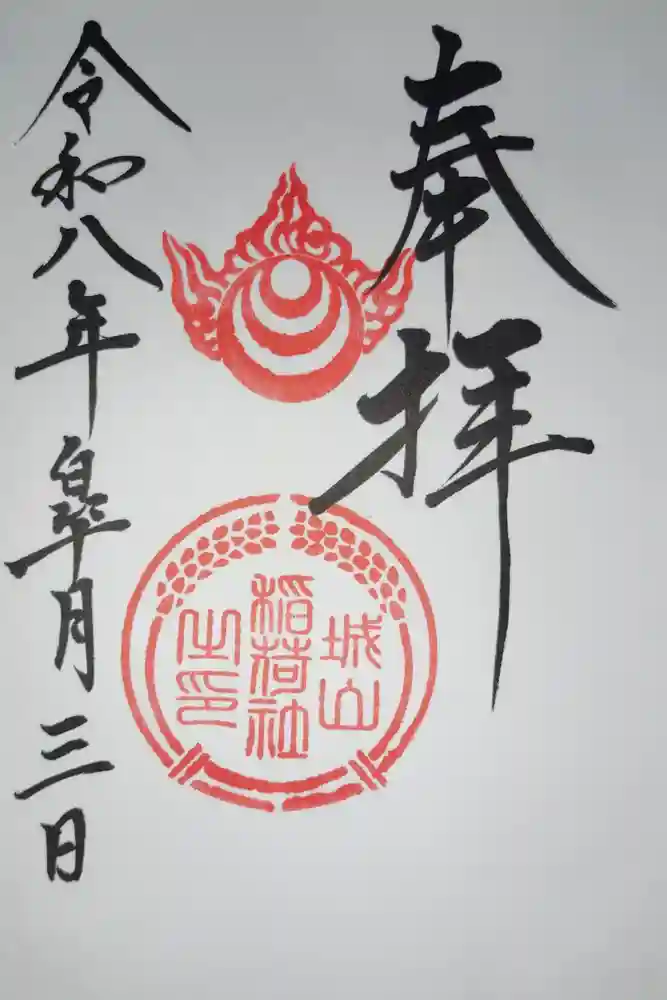 奉拝
城山
稲荷社
之印
令和八年皐月三日